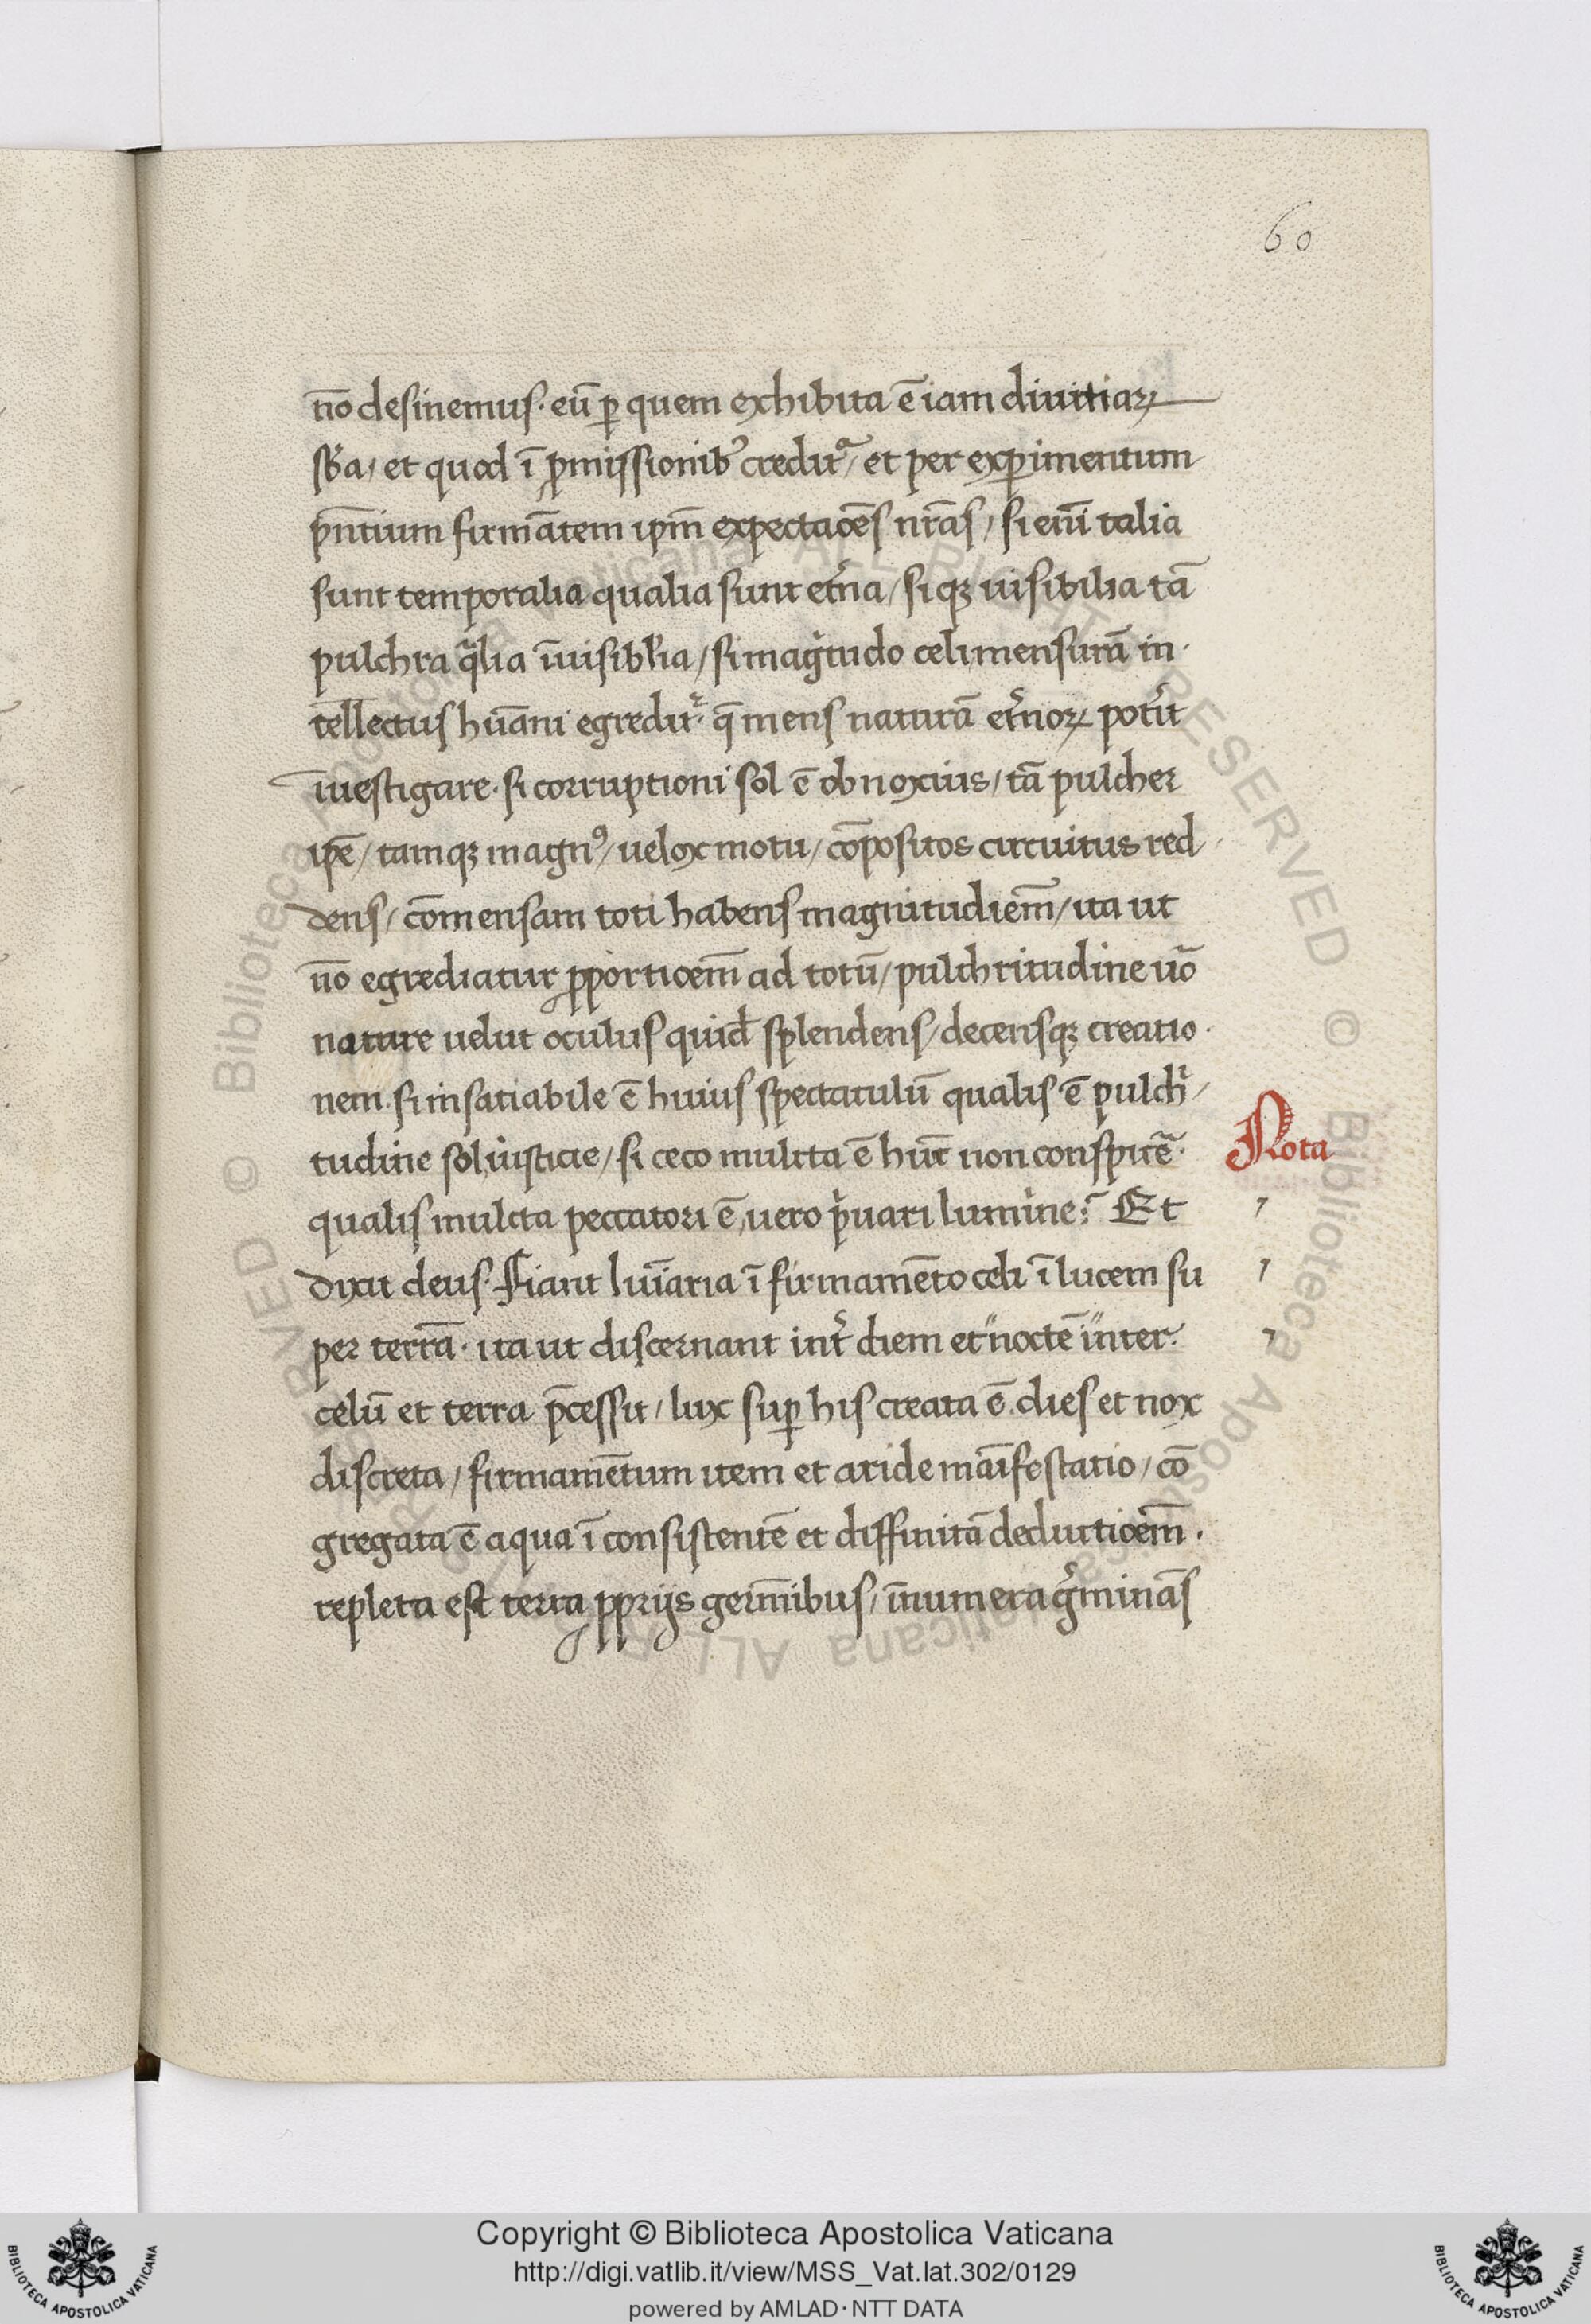 60
nō desinemus· eū ꝑ quem exhibita ē iam diuitiaꝝ
sb̄a/ et quod ī ꝓmissionibꝰ creditᵃ/ et per exꝑimentum
p̄ntium firmātem ipm̄ expectacōēs nr̄as/ si eni talia
sunt temporalia qualia sunt et̄na/ siqꝫ uisibilia tā
pulchra qͣlia īuisibl̓ia/ si magͥtudo celi mensurā in·
tellectus hūani egredit᷑· q̄ mens naturā et̄noꝝ pot̓it
īuestigare· si corruptioni sol ē obnoxius/ tā pulcher
ip̄e/ tamqꝫ magnꝰ/ uelox motu/ cōpositos circuitus red
dens/ cōmensam toti habens magnitudiēm/ ita ut
nō egrediatur ꝓportioēm ad totū/ pulchritudine u̅o
nature uelut oculus quid̄ splendens/ decensqꝫ creatio·
nem· si insatiabile ē huius spectaculū qualis ē pulchͥ/
tudine sol iusticie/ si ceco mulcta ē hūc non conspice᷑·
Nota
qualis mulcta peccatori ē uero pͥuari lumine? Et
dixit deus· Fiant luīaria ī firmamēto celi ī lucem su
per terrā· ita ut discernant int̓ diem et noctē inter·
celū et terra p̄cessit/ lux suꝑ his creata ē· dies et nox
discreta/ firmamētum item et aride maīfestatio/ cō
gregata ē aqua ī consistentē et diffinitā deductioēm·
repleta est terra ꝓprijs germībus/ īnumera g̓minās
Copyright © Biblioteca Apostolica Vaticana
http://digi.vatlib.it/view/MSS_Vat.lat.302/0129
powered by AMLAD·NTT DATA